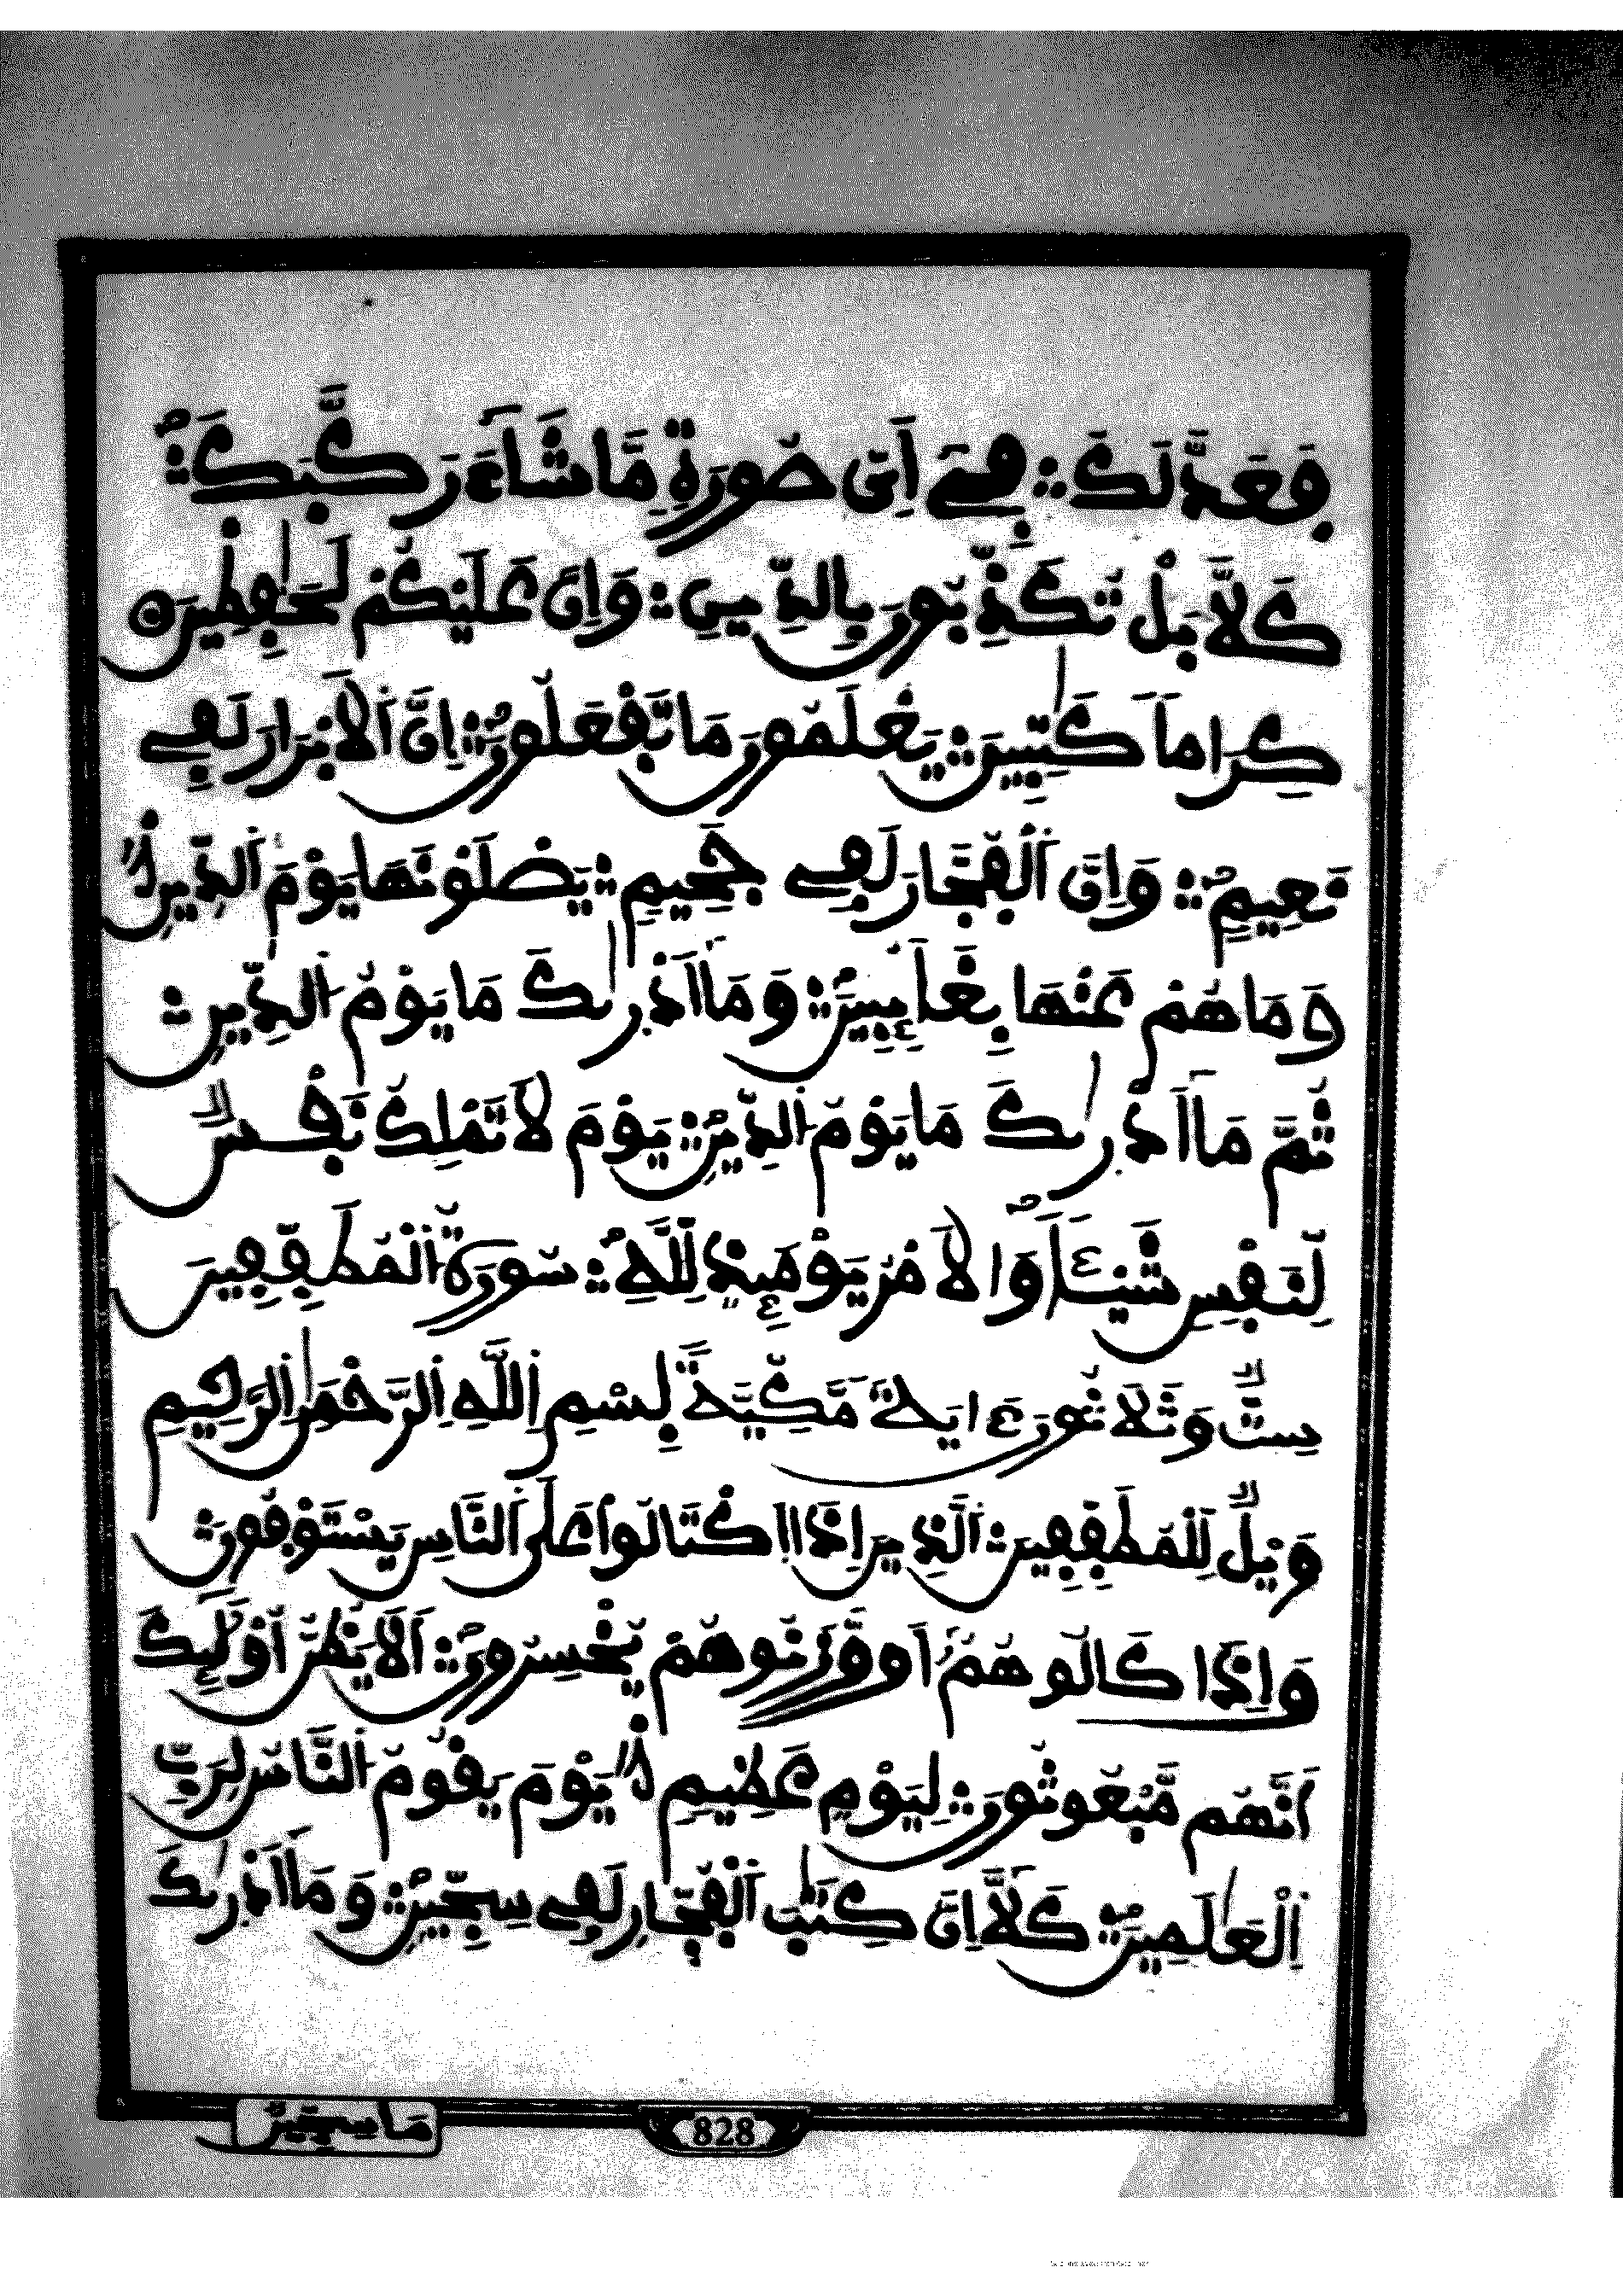 فَعَدَّلَكَ ۞ فِےٓ أَيِّ صُورَةٍ مَّا شَآءَ رَكَّبَكَ ۞
كَلَّا بَلْ تُكَذِّبُونَ بِالدِّينِ ۞ وَإِنَّ عَلَيْكُمْ لَحَٰفِظِينَ ۞
كِرَاماً كَٰتِبِينَ ۞ يَعْلَمُونَ مَا تَفْعَلُونَ ۞ إِنَّ اَلْأَبْرَارَ لَفِے
نَعِيمٍ ۞ وَإِنَّ اَلْفُجَّارَ لَفِے جَحِيمٍ ۞ يَصْلَوْنَهَا يَوْمَ اَلدِّينِ ۞
وَمَا هُمْ عَنْهَا بِغَآئِبِينَ ۞ وَمَآ أَدْرَىٰكَ مَا يَوْمُ اُلدِّينِ ۞
ثُمَّ مَآ أَدْرَىٰكَ مَا يَوْمُ اُلدِّينِ ۞ يَوْمَ لَا تَمْلِكُ نَفْسٌ
لِّنَفْسٍ شَيْـٔاً وَالْأَمْرُ يَوْمَئِذٍ لِّلهِ ۞ سُورَةُ اُلْمُطَفِّفِينَ
سِتٌّ وَثَلَاثُونَ ءَايَةً مَّكِّيَّةٌ بِسْمِ اِللَّهِ اِلرَّحْمَٰنِ اِلرَّحِيمِ
وَيْلٌ لِّلْمُطَفِّفِينَ ۞ اَلَّذِينَ إِذَا اَكْتَالُواْ عَلَى اَلنَّاسِ يَسْتَوْفُونَ ۞
وَإِذَا كَالُوهُمْ أَو وَّزَنُوهُمْ يُخْسِرُونَ ۞ أَلَا يَظُنُّ أُوْلَٰٓئِكَ
أَنَّهُم مَّبْعُوثُونَ ۞ لِيَوْمٍ عَظِيمٍ ۞ يَوْمَ يَقُومُ اُلنَّاسُ لِرَبِّ
اِلْعَٰلَمِينَ ۞ كَلَّا إِنَّ كِتَٰبَ اَلْفُجَّارِ لَفِے سِجِّينٍ ۞ وَمَآ أَدْرَىٰكَ
مَا سِجِّينٌ
828